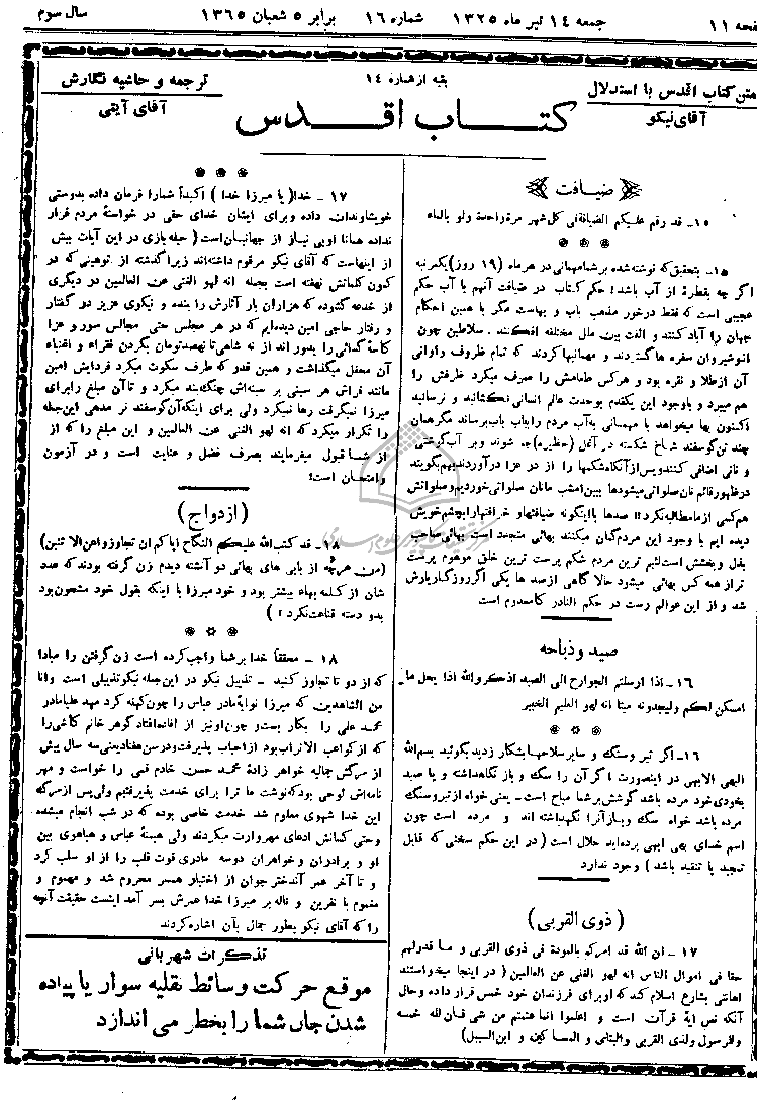 صفحه ۱۱
جمعه ۱۴ تیر ماه ۱۳۲۵ شماره ۱۶ برابر ۵ شعبان ۱۳۶۵
سال سوم
متن کتاب اقدس با استدلال
آقای نیکو
بقیه از شماره ۱۴
کتاب اقدس
ترجمه و حاشیه نگارش
آقای آیتی
ضیافت
۱۵ – قد رقم علیکم الضیافة فی کل شهر مرة واحدة ولو بالماء
۱۵ – بتحقیق که نوشته شده بر شما مهمانی در هر ماه (۱۹ روز) یکمرتبه
اگر چه بقطرهٔ از آب باشد! حکم کتاب در ضیافت آنهم با آب حکم
عجیبی است که فقط درخور مذهب باب و بهاست مگر با همین احکام
جهان را آباد کنند و الفت بین ملل مختلفه افکنند . سلاطین چون
انوشیروان سفره ها گستردند و مهمانیها کردند که تمام ظروف و اوانی
آن از طلا و نقره بود و هر کس طعامش را صرف میکرد ظرفش را
هم میبرد و باوجود این یکقدم بوحدت عالم انسانی نکشانید و نرسانید
اکنون بها میخواهد با مهمانی به آب مردم را بباب باب برساند مگر همان
چند تن گوسفند شاخ شکسته در آغل (حظیره) جمع شوند و بر آب گوشتی
و نانی اضافی کنند و پس از آنکه شکمها را از در عزا در آوردند بهم بگویند
در ظهور قائم نان صلواتی میشود ها ببین امشب ما نان صلواتی خوردیم و صلواتش
هم کسی از ما مطالبه نکرد !! صدها با اینگونه ضیافتها و خرافتها را بچشم خویش
دیده ایم با وجود این مردم گمان میکنند بهائی متجدد است بهائی صاحب
بذل و بخشش است لئیم ترین مردم شکم پرست ترین خلق موهوم پرست
تر از همه کس بهائی میشود حالا گاهی از صد ها یکی اگر روز گاریارش
شد و از این عوالم رست در حکم النادر کالمعدوم است
صید و ذباحه
۱۶ – اذا ارسلتم الجوارح الی الصید اذکروالله اذا یحل ما
امسکن لکم ولو تجدونه میتا انه لهو العلیم الخبیر
۱۶ – اگر تیر و سنگ و سایر سلاحها بشکار زدید بگوئید بسم الله
البهی الابهی در اینصورت اگر آن را سگ و باز نگاهداشته و یا صید
بخودی خود مرده باشد گوشتش بر شما مباح است – یعنی خواه از تیر و سنگ
مرده باشد خواه سگ و باز آنرا نگهداشته اند و مرده است چون
اسم خدای بهی ابهی برده اید حلال است ( در این حکم سخنی که قابل
تمجید یا تنقید باشد ) وجود ندارد
( ذوی القربی )
۱۷ – ان الله قد امرکم بالمودة فی ذوی القربی و ما قدر لهم
حقا فی اموال الناس انه لهو الغنی عن العالمین ( در اینجا میخواستند
اهانتی بشارع اسلام کند که او برای فرزندان خود خمس قرار داده و حال
آنکه نص آیهٔ قرآنست و اعلموا انما غنمتم من شی فان لله خمسه
و للرسول ولذی القربی والیتامی و المساکین و ابن السبیل)
۱۷ – خدا ( یا میرزا خدا ) اکیداً شما را فرمان داده بدوستی
خویشاوندان. داده و برای ایشان خدای حقی در خواستهٔ مردم قرار
نداده همانا او بی نیاز از جهانیان است ( حیله بازی در این آیات بیش
از اینهاست که آقای نیکو مرقوم داشته اند زیرا گذشته از توهینی که در
کمون کلماتش نهفته است بجمله انه لهو الغنی عن العالمین در دیگری
از خدعه گشوده که هزاران بار آثارش را بنده و نیکوی عزیز در گفتار
و رفتار حاجی امین دیده ایم که در هر مجلس حتی مجالس سور و عزا
کاسهٔ گدائی را بدور اند از نه شاهی تا نهصد تومان بگردن فقراء و اغنیاء
آن محفل میگذاشت و همین قدر که طرف سکوت میکرد فردایش امین
مانند فراش هر سینی بر سینه اش چنگ بند میکرد و تا آن مبلغ را برای
میرزا نمیگرفت رها نمیکرد ولی برای اینکه آن گوسفند نر مدهی این جمله
را تکرار میکرد که انه لهو الغنی عن العالمین و این مبلغ را که از
از شما قبول میفرمایند بصرف فضل و عنایت است و در آزمون
و امتحان است!
(ازدواج)
۱۸ – قد کتب الله علیکم النکاح ایاکم ان تجاوزوا عن الاثنین)
(من هر چه از بابی های بهائی دو آتشه دیدم زن گرفته بودند که عدد
شان از کلمه بهاء بیشتر بود و خود میرزا که بقول خود مشحون بود
بدو دسته قناعت نکرد ! )
۱۸ – محققاً خدا بر شما واجب کرده است زن گرفتن را مبادا
که از دو تا تجاوز کنید – تذییل نیکو در این جمله نیکو تذییلی است و انا
من الشاهدین که میرزا نوابهٔ مادر عباس را چون کهنه کرد مهد علیا مادر
محمد علی را بکار بست و چون او نیز از افاده افتاد گوهر خانم کاشی را
که از کواعب الاتراب بود از احباب پذیرفت و در سن هفتاد یعنی سه سال پیش
از مرگش جمالیه خواهر زادهٔ محمد حسن خادم قمی را خواست و مهر
نامه اش لوحی بود که نوشت ما ترا برای خدمت پذیرفتیم ولی پس از مرگ
این خدا شهوی معلوم شد خدمت خاصی بوده که در شب انجام میشده
و حتی کسانش ادعای مهر و ارث میکردند ولی هیمنهٔ عباس و هیاهوی بین
او و برادران و خواهران دوسه مادری قوت قلب را از او سلب کرد
و تا آخر عمر آن دختر جوان از اختیار همسر محروم شد و مهموم و
مغموم با نفرین و ناله بر میرزا خدا عمرش بسر آمد اینست حقیقت آنچه
را که آقای نیکو بطور جمال بآن اشاره کردند
تذکرات شهربانی
موقع حرکت وسائط نقلیه سوار یا پیاده
شدن جان شما را بخطر می اندازد